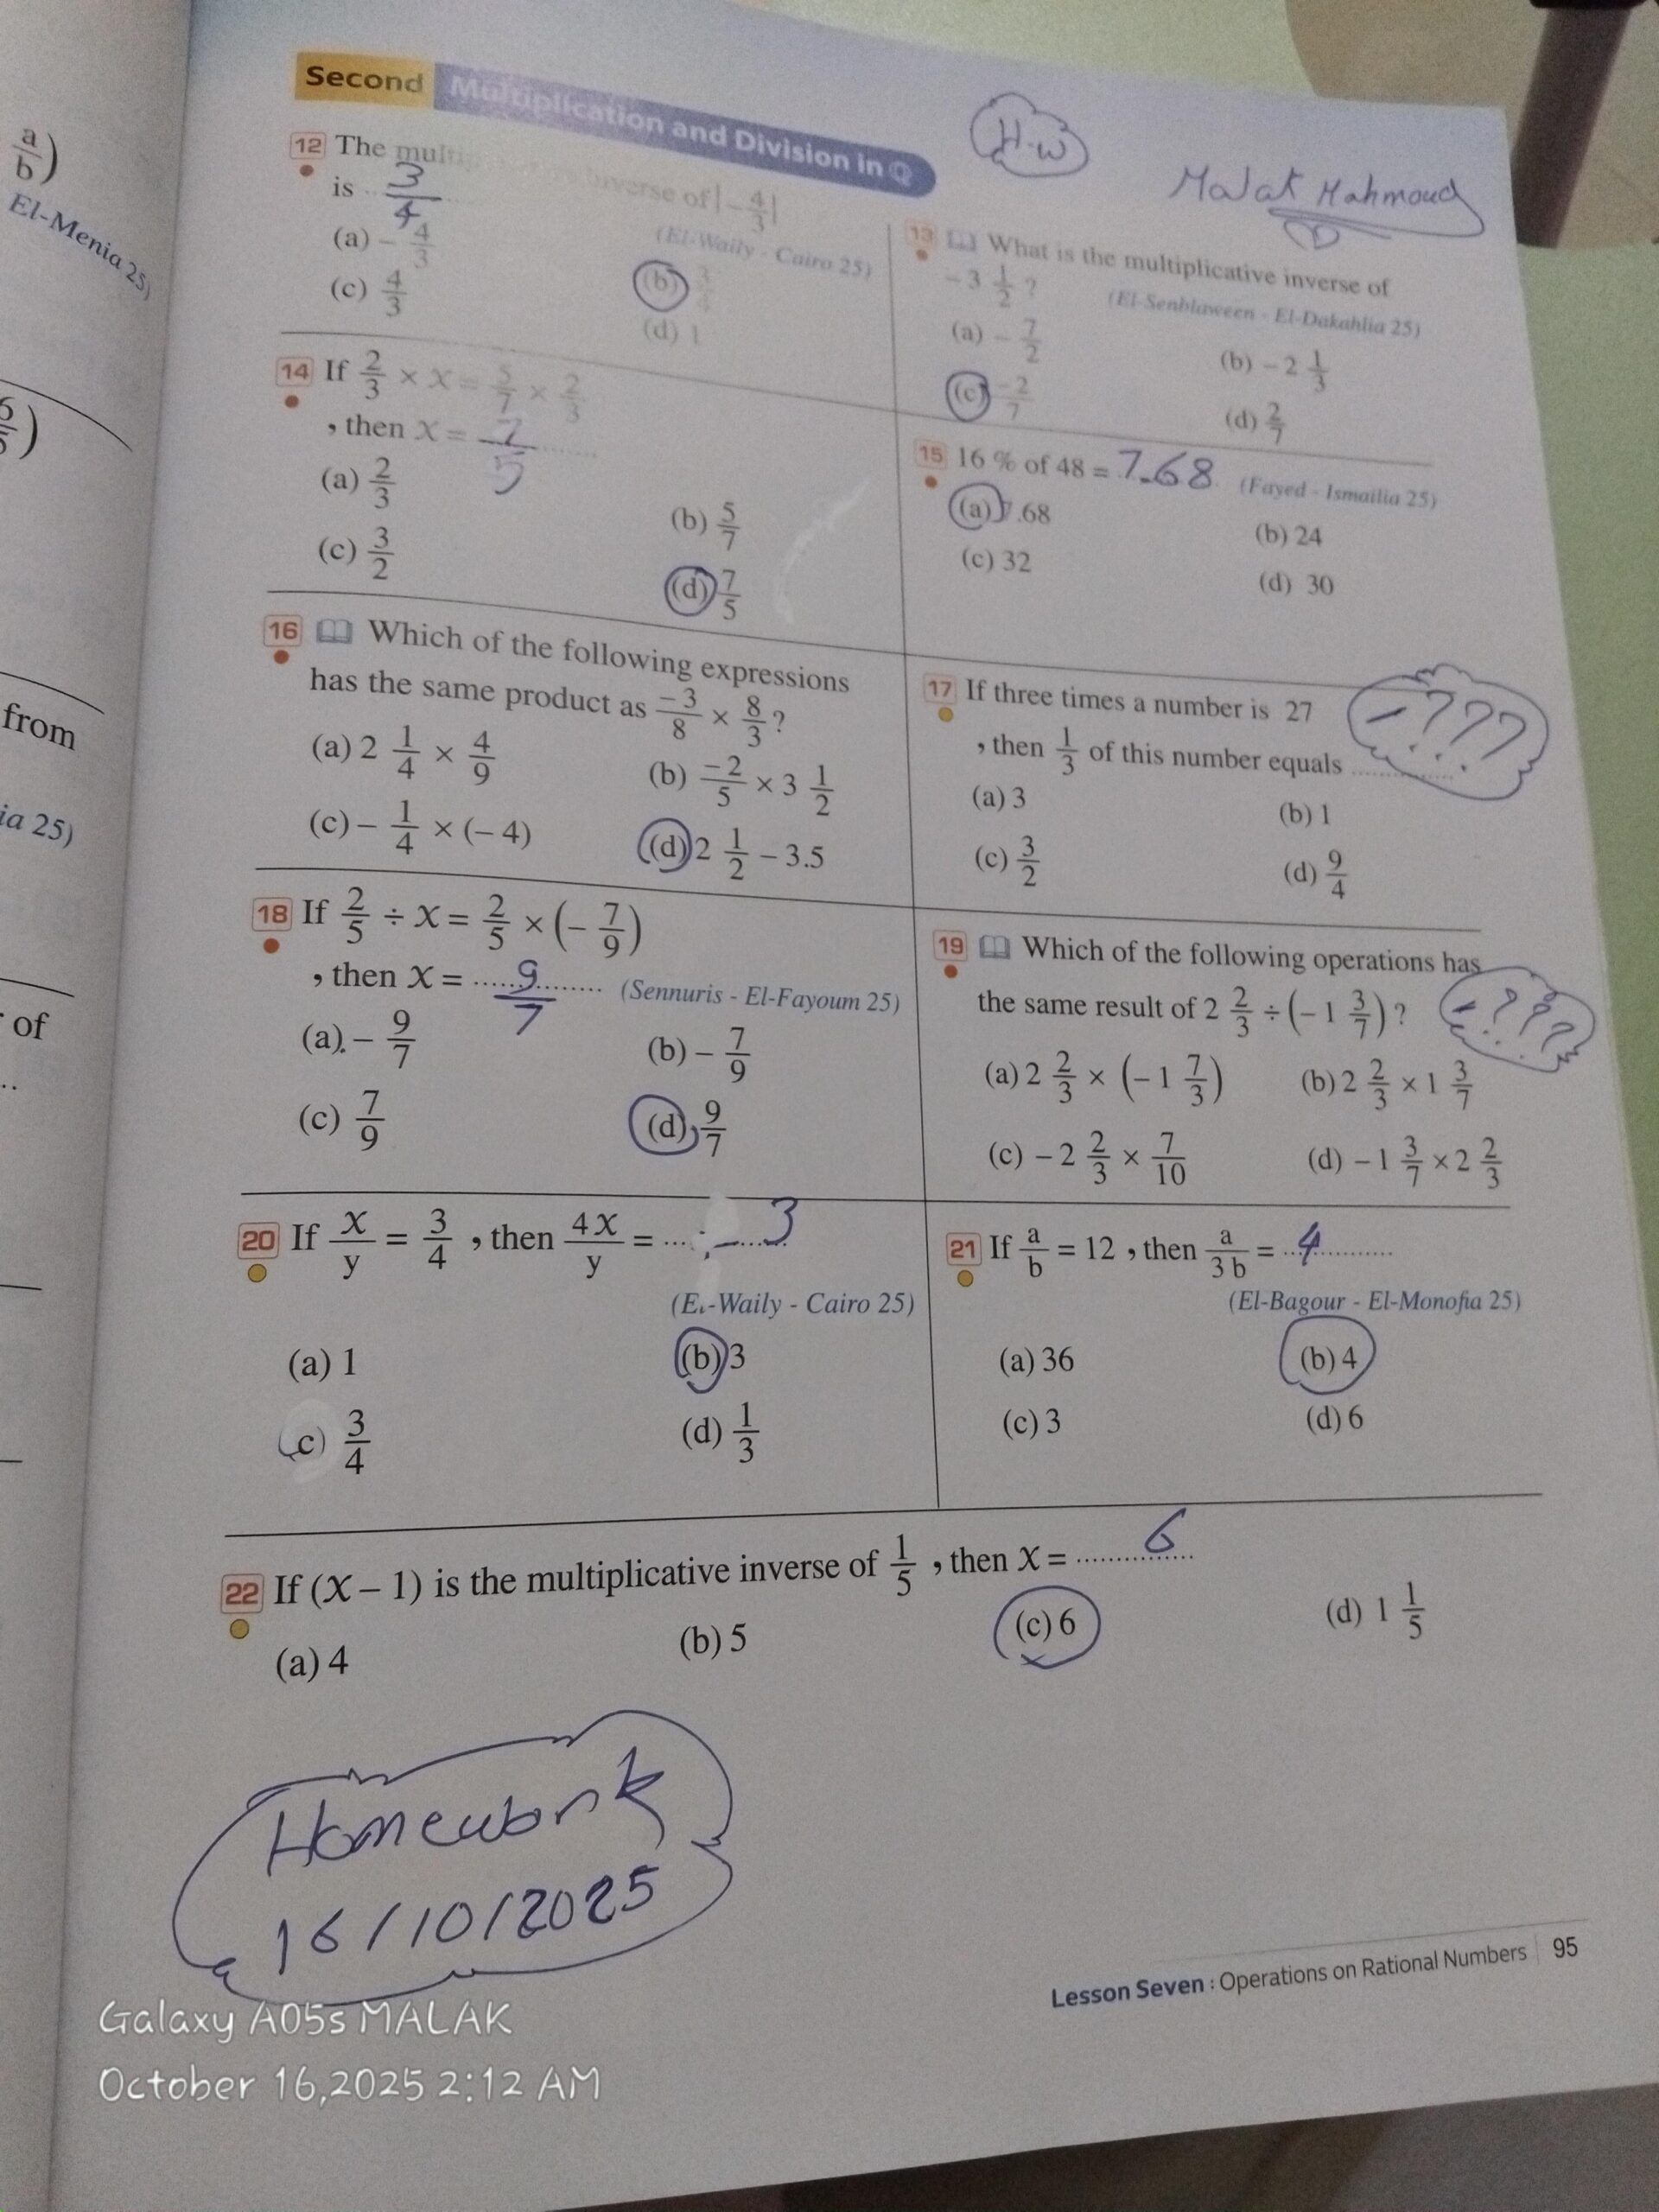 a/b)
El-Menia 25)
6/5)
from
ia 25)
of
..
Second Multiplication and Division in Q
H.w
Malak Mahmoud
12 The multiplicative inverse of |-4/3|
is .. 3/4
(El-Waily - Cairo 25)
(a) - 4/3 (b) 3/4
(c) 4/3 (d) 1
13 What is the multiplicative inverse of
- 3 1/2 ?
(El-Senblaween - El-Dakahlia 25)
(a) - 7/2 (b) - 2 1/3
(c) -2/7 (d) 2/7
14 If 2/3 × X = 5/7 × 2/3
, then X = 7/5
(a) 2/3 (b) 5/7
(c) 3/2 (d) 7/5
15 16 % of 48 = 7.68 (Fayed - Ismailia 25)
(a) 7.68 (b) 24
(c) 32 (d) 30
16 Which of the following expressions
has the same product as -3/8 × 8/3 ?
(a) 2 1/4 × 4/9 (b) -2/5 × 3 1/2
(c) - 1/4 × (- 4) (d) 2 1/2 - 3.5
17 If three times a number is 27
, then 1/3 of this number equals ............
-???
(a) 3 (b) 1
(c) 3/2 (d) 9/4
18 If 2/5 ÷ X = 2/5 × (- 7/9)
, then X = 9/7 (Sennuris - El-Fayoum 25)
(a) - 9/7 (b) - 7/9
(c) 7/9 (d) 9/7
19 Which of the following operations has
the same result of 2 2/3 ÷ (- 1 3/7) ?
-???
(a) 2 2/3 × (- 1 7/3) (b) 2 2/3 × 1 3/7
(c) - 2 2/3 × 7/10 (d) - 1 3/7 × 2 2/3
20 If X/y = 3/4 , then 4X/y = 3
(El-Waily - Cairo 25)
(a) 1 (b) 3
(c) 3/4 (d) 1/3
21 If a/b = 12 , then a/3b = 4
(El-Bagour - El-Monofia 25)
(a) 36 (b) 4
(c) 3 (d) 6
22 If (X - 1) is the multiplicative inverse of 1/5 , then X = 6
(a) 4 (b) 5 (c) 6 (d) 1 1/5
Homework
16/10/2025
Lesson Seven : Operations on Rational Numbers 95
Galaxy A05s MALAK
October 16,2025 2:12 AM